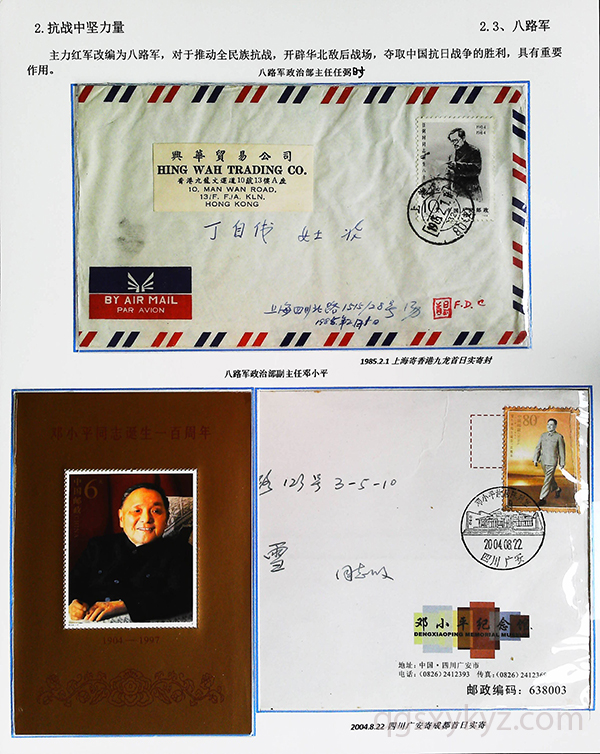 2.抗战中坚力量
2.3、八路军
主力红军改编为八路军，对于推动全民族抗战，开辟华北敌后战场，夺取中国抗日战争的胜利，具有重要
作用。
八路军政治部主任任弼时
興華貿易公司
HING WAH TRADING CO.
香港九龍文運道10號13樓A座
10, MAN WAN ROAD,
13/F. F/A. KLN,
HONG KONG
中国邮政
上海
1985.2.1
丁自伟 女士 收
BY AIR MAIL
PAR AVION
上海四川北路1515/28号
F.D.C
1985.2.1 上海寄香港九龙首日实寄封
八路军政治部副主任邓小平
邓小平同志诞生一百周年
6元
中国邮政
1904—1997
80
路 123号 3-5-10
2004.08.22
四川 广安
雪 同志收
邓小平纪念馆
DENGXIAOPING MEMORIAL MUSEUM
地址：中国·四川广安市
电话：(0826) 2412393 传真：(0826) 241236
邮政编码：638003
2004.8.22 四川广安寄成都首日实寄
qgsxykyz.com